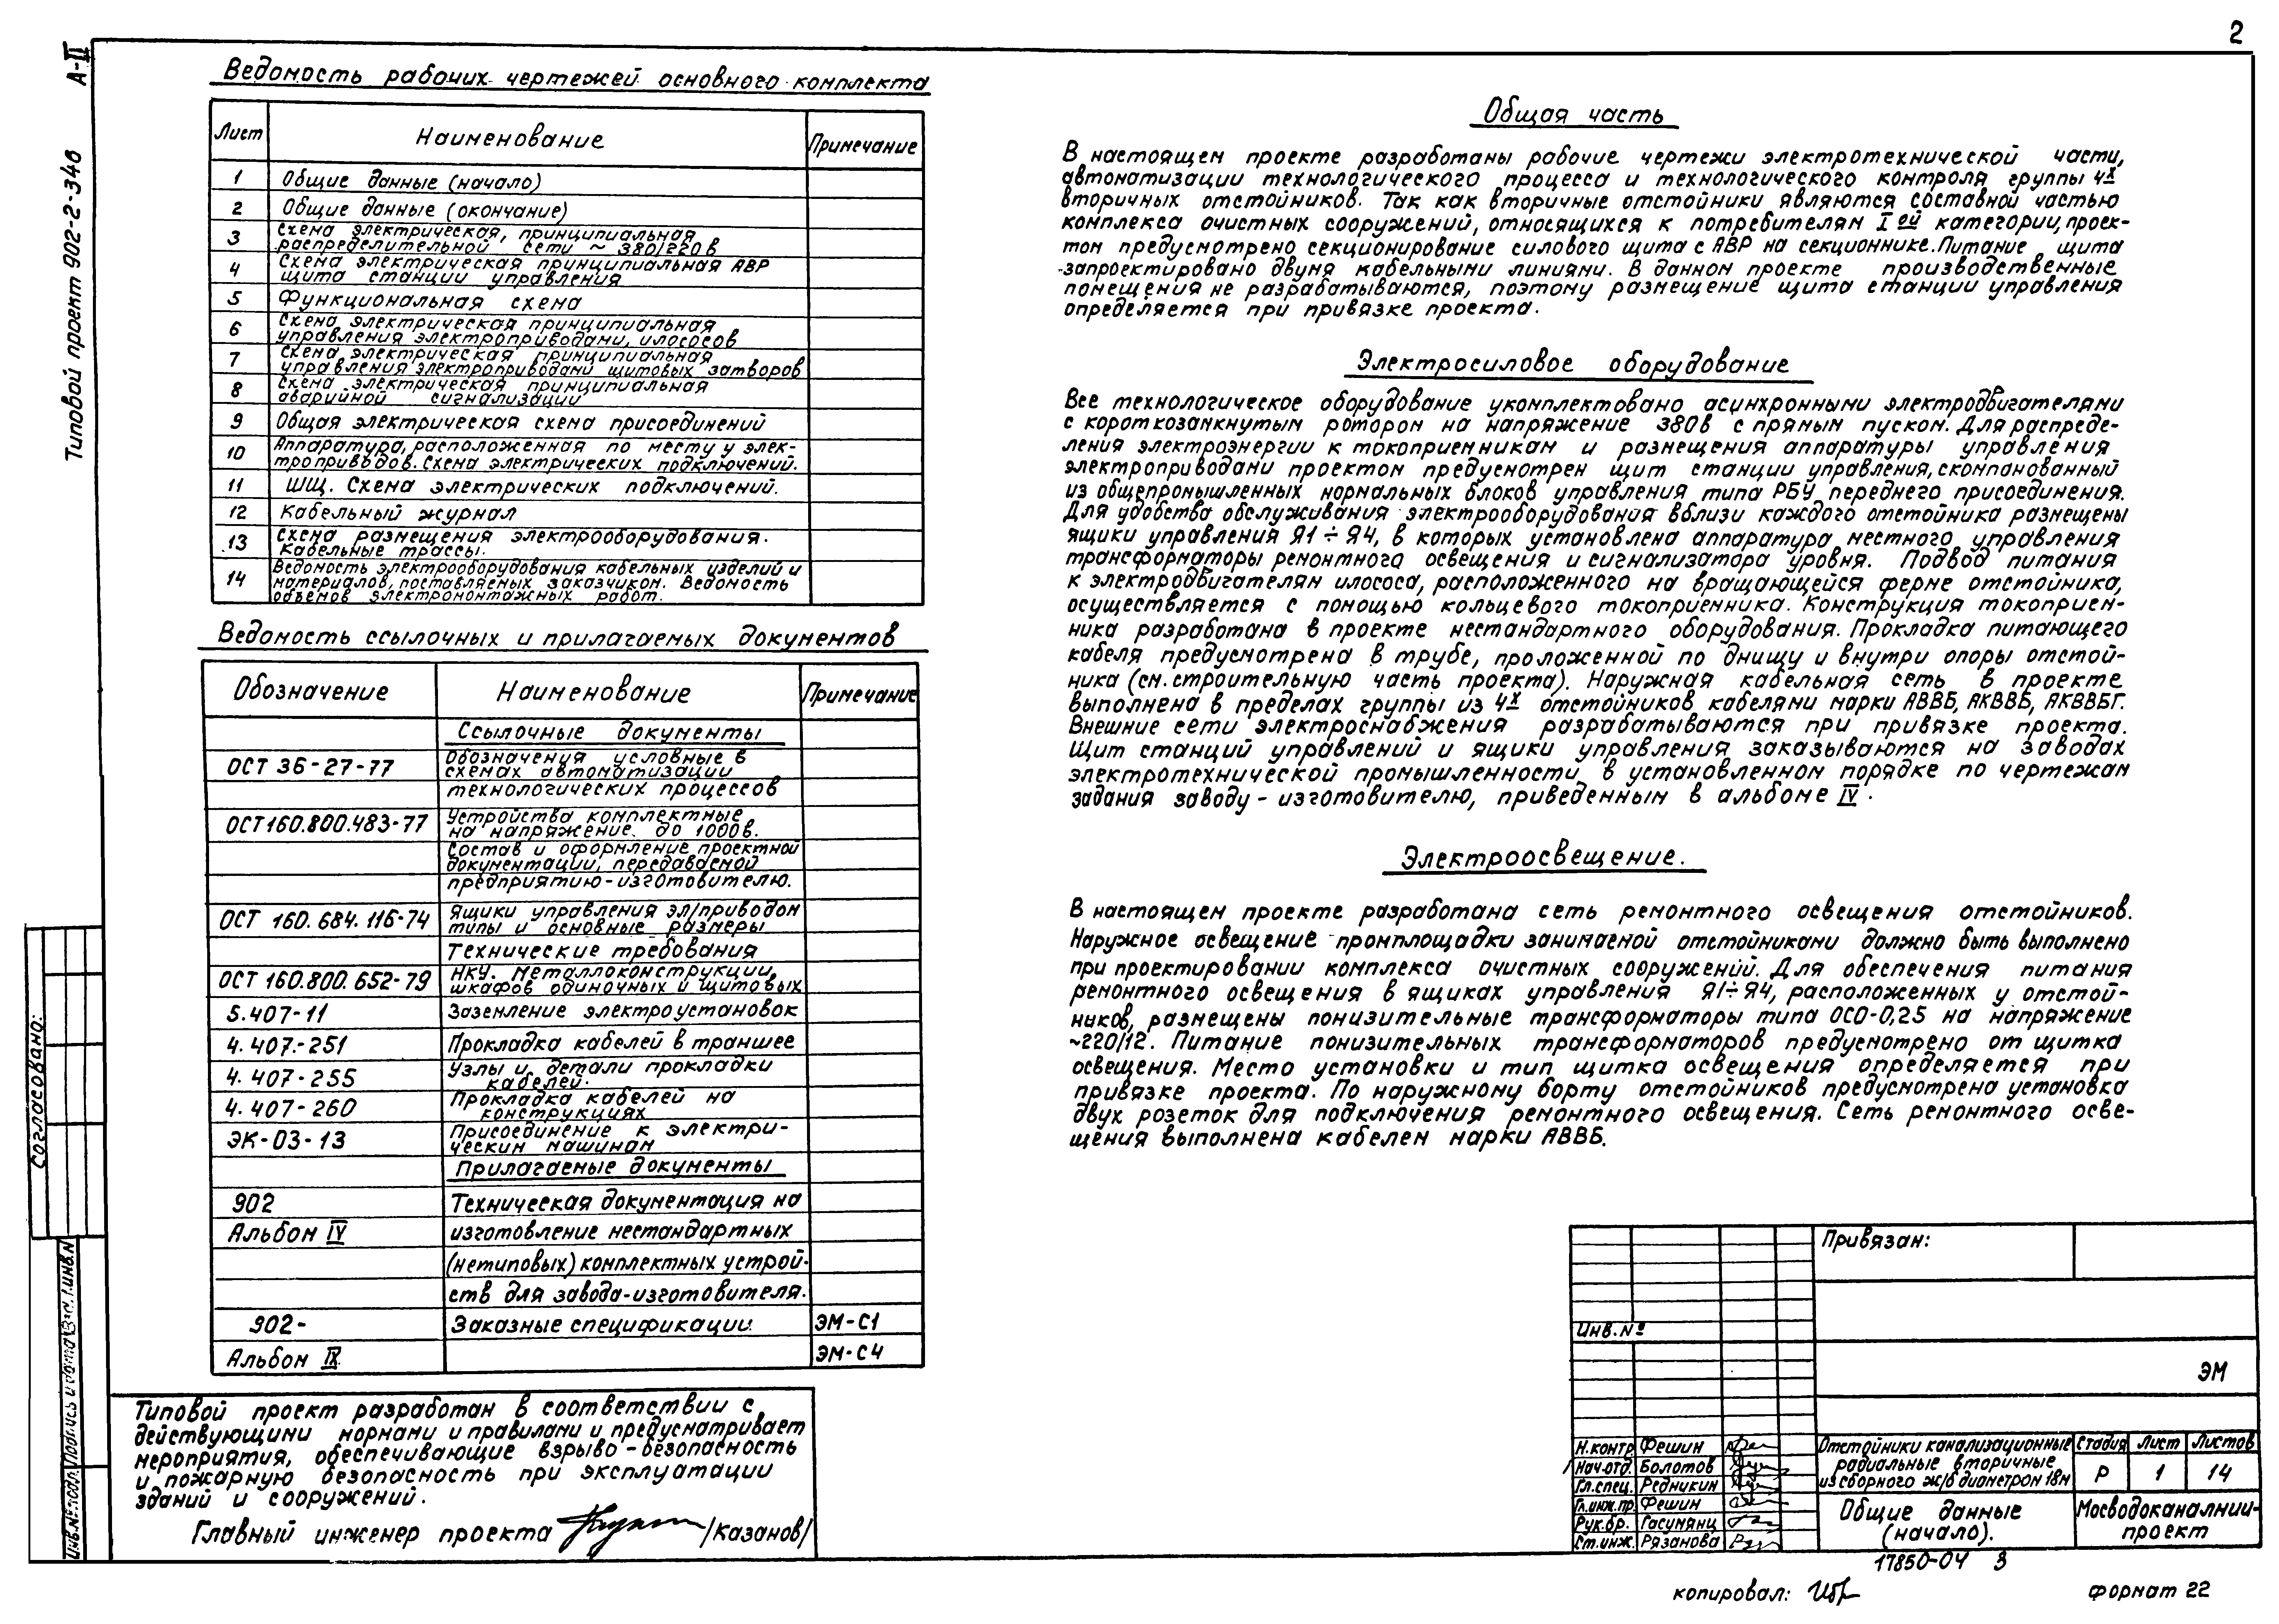 2
А-II
Типовой проект 902-2-346
Ведомость рабочих чертежей основного комплекта
Лист Наименование Примечание
1 Общие данные (начало)
2 Общие данные (окончание)
3 Схема электрическая, принципиальная
распределительной сети ~ 380/220в
4 Схема электрическая принципиальная АВР
щита станции управления
5 Функциональная схема
6 Схема электрическая принципиальная
управления электроприводами, илососов
7 Схема электрическая принципиальная
управления электроприводами щитовых затворов
8 Схема электрическая принципиальная
аварийной сигнализации
9 Общая электрическая схема присоединений
10 Аппаратура, расположенная по месту у элек-
троприводов. Схема электрических подключений.
11 ШЩ. Схема электрических подключений.
12 Кабельный журнал
13 Схема размещения электрооборудования.
Кабельные трассы.
14 Ведомость электрооборудования кабельных изделий и
материалов, поставляемых заказчиком. Ведомость
объемов электромонтажных работ.
Ведомость ссылочных и прилагаемых документов
Обозначение Наименование Примечание
Ссылочные документы
ОСТ 36-27-77 Обозначения условные в
схемах автоматизации
технологических процессов
ОСТ160.800.483-77 Устройства комплектные
на напряжение до 1000в.
Состав и оформление проектной
документации, передаваемой
предприятию-изготовителю.
ОСТ 160.684.116-74 Ящики управления эл/приводом
типы и основные размеры
Технические требования
ОСТ 160.800.652-79 НКУ. Металлоконструкции
шкафов одиночных и щитовых
5.407-11 Заземление электроустановок
4.407-251 Прокладка кабелей в траншее
4.407-255 Узлы и детали прокладки
кабелей.
4.407-260 Прокладка кабелей на
конструкциях
ЭК-03-13 Присоединение к электри-
ческим машинам
Прилагаемые документы
902 Техническая документация на
Альбом IV изготовление нестандартных
(нетиповых) комплектных устрой-
ств для завода-изготовителя.
902- Заказные спецификации ЭМ-С1
Альбом IX ЭМ-С4
Типовой проект разработан в соответствии с
действующими нормами и правилами и предусматривает
мероприятия, обеспечивающие взрыво-безопасность
и пожарную безопасность при эксплуатации
зданий и сооружений.
Главный инженер проекта /Казанов/
Общая часть
В настоящем проекте разработаны рабочие чертежи электротехнической части,
автоматизации технологического процесса и технологического контроля группы 4х
вторичных отстойников. Так как вторичные отстойники являются составной частью
комплекса очистных сооружений, относящихся к потребителям I ой категории, проек-
том предусмотрено секционирование силового щита с АВР на секционнике. Питание щита
запроектировано двумя кабельными линиями. В данном проекте производственные
помещения не разрабатываются, поэтому размещение щита станции управления
определяется при привязке проекта.
Электросиловое оборудование
Все технологическое оборудование укомплектовано асинхронными электродвигателями
с короткозамкнутым ротором на напряжение 380в с прямым пуском. Для распреде-
ления электроэнергии к токоприемникам и размещения аппаратуры управления
электроприводами проектом предусмотрен щит станции управления, скомпанованный
из общепромышленных нормальных блоков управления типа РБУ переднего присоединения.
Для удобства обслуживания электрооборудования вблизи каждого отстойника размещены
ящики управления Я1÷Я4, в которых установлена аппаратура местного управления
трансформаторы ремонтного освещения и сигнализатора уровня. Подвод питания
к электродвигателям илососа, расположенного на вращающейся ферме отстойника,
осуществляется с помощью кольцевого токоприемника. Конструкция токоприем-
ника разработана в проекте нестандартного оборудования. Прокладка питающего
кабеля предусмотрена в трубе, проложенной по днищу и внутри опоры отстой-
ника (см. строительную часть проекта). Наружная кабельная сеть в проекте
выполнена в пределах группы из 4х отстойников кабелями марки АВВБ, АКВВБ, АКВВБГ.
Внешние сети электроснабжения разрабатываются при привязке проекта.
Щит станций управлений и ящики управления заказываются на заводах
электротехнической промышленности в установленном порядке по чертежам
задания заводу - изготовителю, приведенным в альбоме IV.
Электроосвещение.
В настоящем проекте разработана сеть ремонтного освещения отстойников.
Наружное освещение промплощадки занимаемой отстойниками должно быть выполнено
при проектировании комплекса очистных сооружений. Для обеспечения питания
ремонтного освещения в ящиках управления Я1÷Я4, расположенных у отстой-
ников, размещены понизительные трансформаторы типа ОСО-0,25 на напряжение
~220/12. Питание понизительных трансформаторов предусмотрено от щитка
освещения. Место установки и тип щитка освещения определяется при
привязке проекта. По наружному борту отстойников предусмотрена установка
двух розеток для подключения ремонтного освещения. Сеть ремонтного осве-
щения выполнена кабелем марки АВВБ.
Согласовано:
Инв.№ подл. Подпись и дата Взам.инв.№
Привязан:
Инв.№
ЭМ
Н.контр Фешин
Нач.отд Болотов
Гл.спец. Редникин
Гл.инж.пр. Фешин
Рук.бр. Гасумянц
Ст.инж. Рязанова
Отстойники канализационные
радиальные вторичные
из сборного ж/б диаметром 18м
Стадия Лист Листов
Р 1 14
Общие данные
(начало).
Мосводоканалнии-
проект
17850-04 3
копировал:
Формат 22